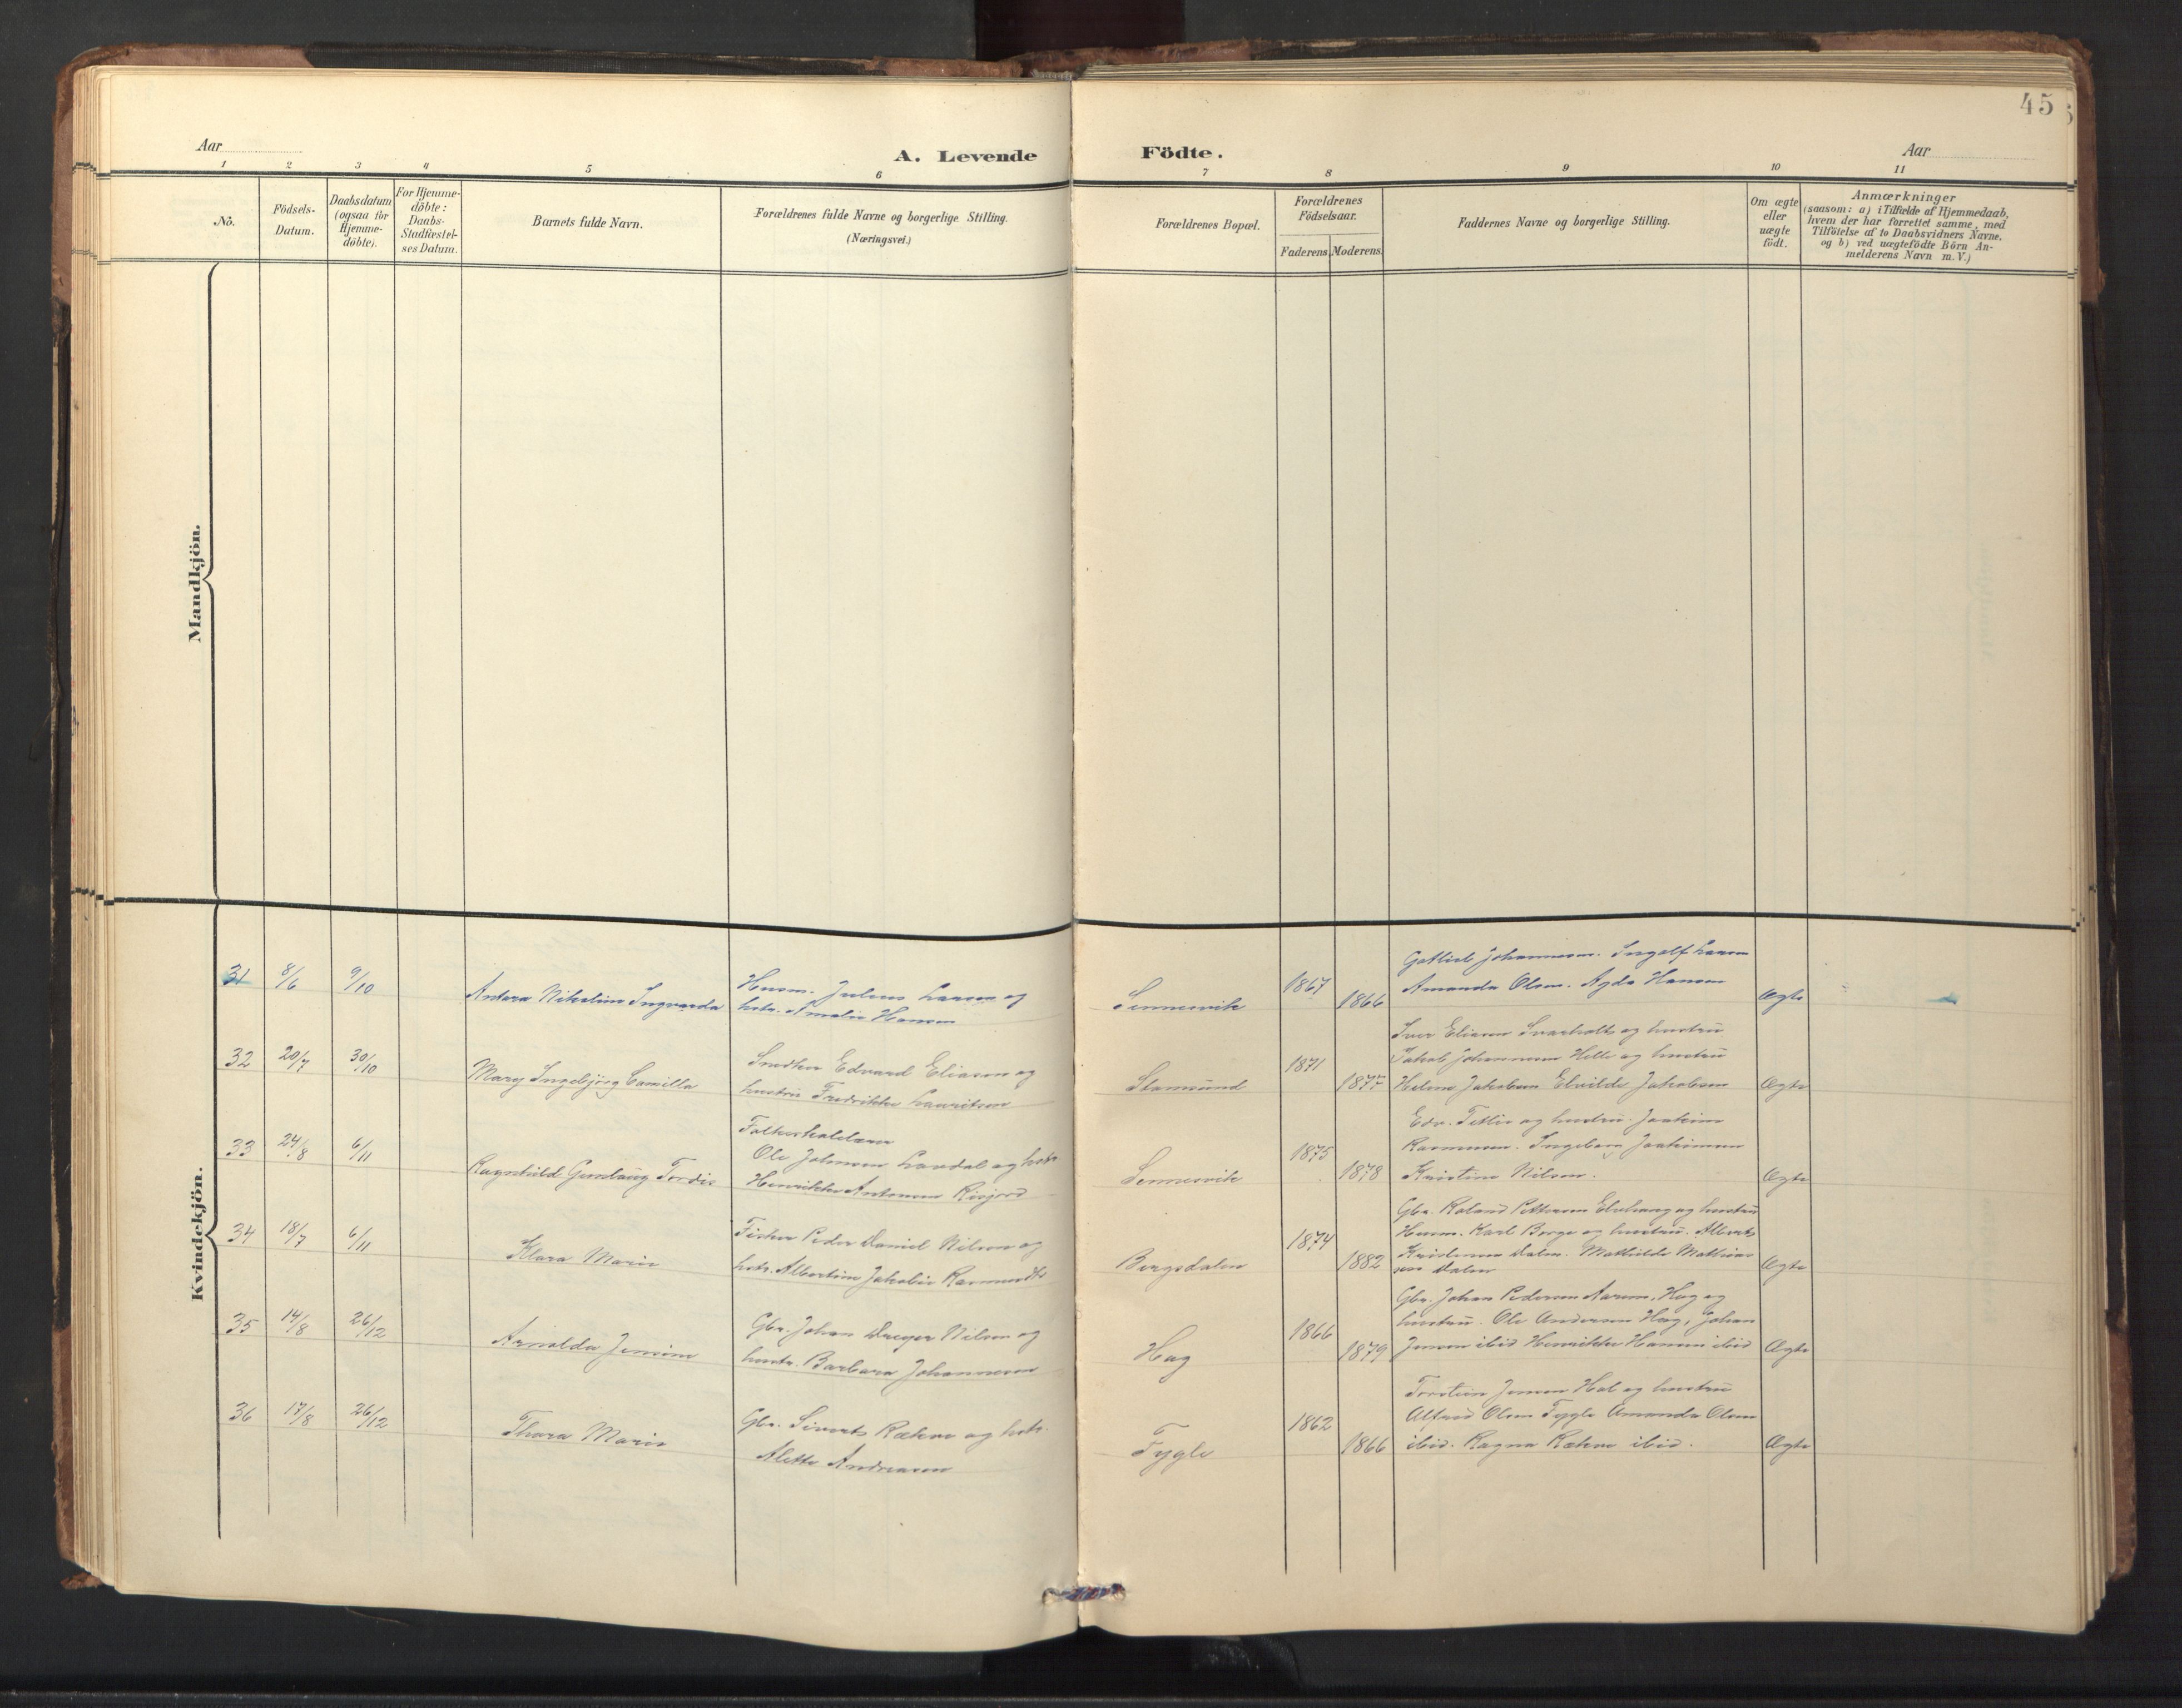 45
Aar
A. Levende
Födte.
Aar
1 2 3 4 5 6 7 8 9 10 11
No.
Födsels-
Datum.
Daabsdatum
(ogsaa for
Hjemme-
döbte).
For Hjemme-
döbte:
Daabs-
Stadfæstel-
ses Datum.
Barnets fulde Navn.
Forældrenes fulde Navne og borgerlige Stilling.
(Næringsvei.)
Forældrenes Bopæl.
Forældrenes
Födselsaar.
Faderens.
Moderens.
Faddernes Navne og borgerlige Stilling.
Om ægte
eller
uægte
födt.
Anmærkninger
(saasom: a) i Tilfælde af Hjemmedaab,
hvem der har forrettet samme, med
Tilföielse af to Daabsvidners Navne,
og b) ved uægtefödte Börn An-
melderens Navn m.V.)
Mandkjön.
Kvindekjön.
31 8/6 9/10
Antora Nikoline Ingvarda
Husm. Julius Larsen og
hstr. Amalie Hansen
Sennesvik
1867
1866
Gotlieb Johannesen. Ingolf Larsen
Amanda Olsen. Agda Hansen
Ægte
32 20/7 30/10
Mary Ingebjörg Camilla
Snedker Edvard Eliasen og
hustru Fredrikke Lauritsen
Stamsund
1871
1877
Iver Eliasen Svarholt og hustru
Jakob Johannesen Helle og hustru
Helene Jakobsen Elvilde Jakobsen
Ægte
33 24/8 6/11
Ragnhild Gunlaug Tordis
Ole Johnsen Lardal og hstr
Henrikke Antonsen Risjord
Sennesvik
1875
1878
Edv. Tetlie og hustru. Joakim
Rasmussen. Ingeborg Joakimsen
Kristine Nilsen.
Ægte
34 18/7 6/11
Klara Marie
Fisker Peder Daniel Nilsen og
hstr. Albertine Jakobie
Borgsdalen
1874
1882
Gbr. Roland Pettersen og hustru
Husm. Karl Borge og hustru. Alberts
Kristensen Dalen. Mathilde Mathias
sen Dalen
Ægte
35 14/8 26/12
Arnolda Jensine
Gbr. Johan Dreyer Nilsen og
hustr. Barbara Johannesen
Hag
1866
1879
Gbr. Johan Pedersen Hag og
hustru. Ole Andersen Hag, Johan
Jensen ibid Henrikke Hansen ibid
Ægte
36 17/8 26/12
Thora Marie
Gbr. Siverts Rækve og hstr.
Alette Andreasen
Fygle
1862
1866
Torstein Jensen Hol og hustru
Alfred Olsen Fygle Amanda Olsen
ibid. Ragna Rækve ibid.
Ægte